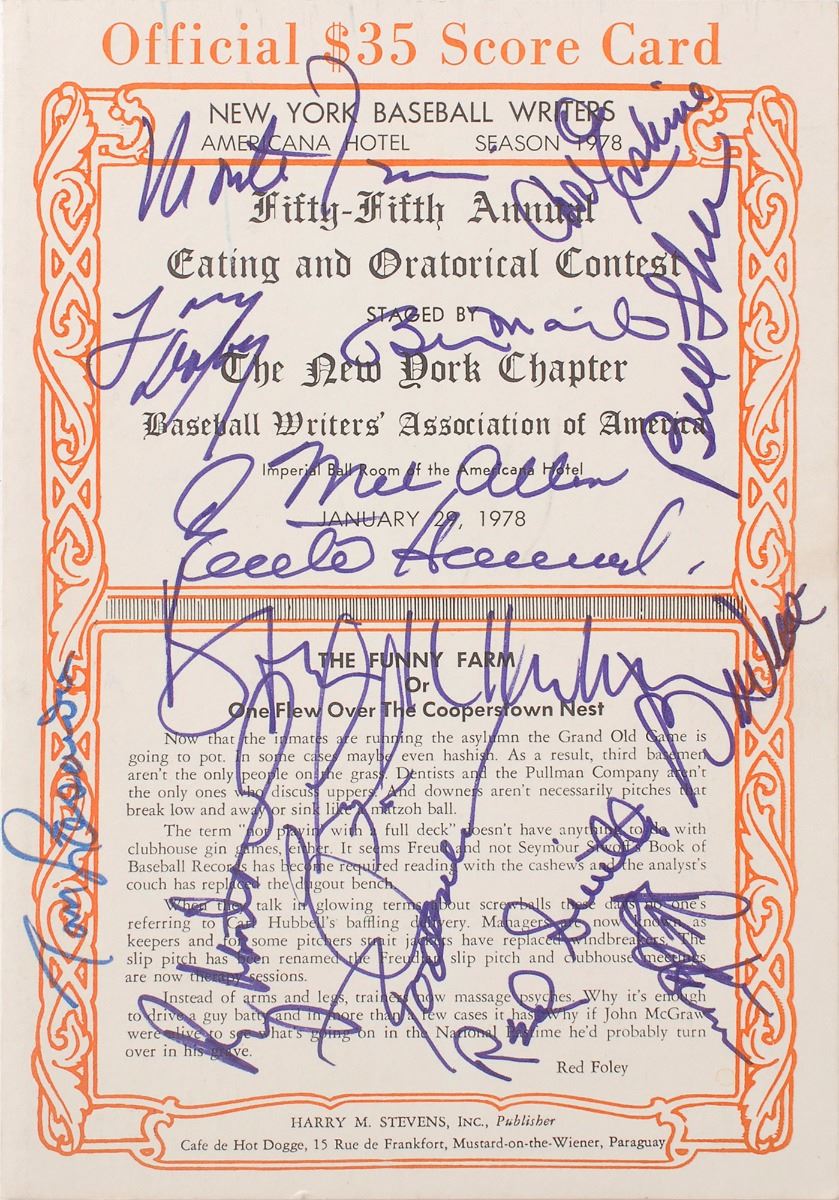 Official $35 Score Card
NEW YORK BASEBALL WRITERS
AMERICANA HOTEL SEASON 1978
Monte Irvin
Carl Erskine
Fifty-Fifth Annual
Eating and Oratorical Contest
STAGED BY
Larry Doby
The New York Chapter
Baseball Writers' Association of America
Imperial Ball Room of the Americana Hotel
Mel Allen
JANUARY 29, 1978
THE FUNNY FARM
Or
One Flew Over The Cooperstown Nest
Now that the inmates are running the asylumn the Grand Old Game is
going to pot. In some cases maybe even hashish. As a result, third basemen
aren't the only people on the grass. Dentists and the Pullman Company aren't
the only ones who discuss uppers. And downers aren't necessarily pitches that
break low and away or sink like a matzoh ball.
The term "not playin' with a full deck" doesn't have anything to do with
clubhouse gin games, either. It seems Freud and not Seymour Siwoff's Book of
Baseball Records has become required reading with the cashews and the analyst's
couch has replaced the dugout bench.
When they talk in glowing terms about screwballs these days no one's
referring to Carl Hubbell's baffling delivery. Managers are now known as
keepers and for some pitchers strait jackets have replaced windbreakers. The
slip pitch has been renamed the Freudian slip pitch and clubhouse meetings
are now therapy sessions.
Instead of arms and legs, trainers now massage psyches. Why it's enough
to drive a guy batty and in more than a few cases it has. Why if John McGraw
were alive to see what's going on in the National Pastime he'd probably turn
over in his grave.
Red Foley
HARRY M. STEVENS, INC., Publisher
Cafe de Hot Dogge, 15 Rue de Frankfort, Mustard-on-the-Wiener, Paraguay